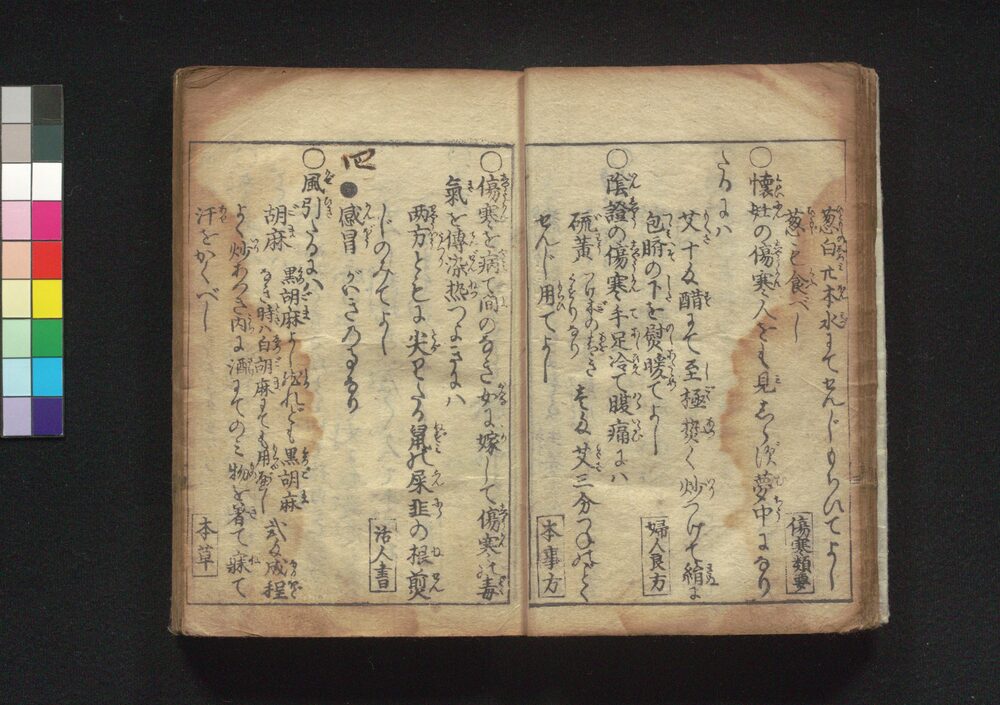 葱白廿本水にてせんじもちいてよし
葱も食べし
傷寒類要
○懐妊の傷寒人をも見しらず夢中になり
たるには
艾十匁醋にて至極熱く炒つけて絹に
包臍の下を熨暖てよし
婦人良方
○陰證の傷寒手足冷て腹痛には
硫黄 つけ木のさきにぬるなり 壱匁 艾三分つねのごとく
せんじ用てよし
本事方
○傷寒を病て間のなき女に嫁して傷寒の毒
氣を傳熱つよきには
両方ともに尖りたる鼠の屎韮の根煎
じのみてよし
活人書
四
●感冒 がいきの事なり
○風引たるには
胡麻 黒胡麻よしされども黒胡麻なき時ハ白胡麻にても用べし 弐匁成程
よく炒あつき内に酒にてのミ物を着て寐て
汗をかくべし
本草